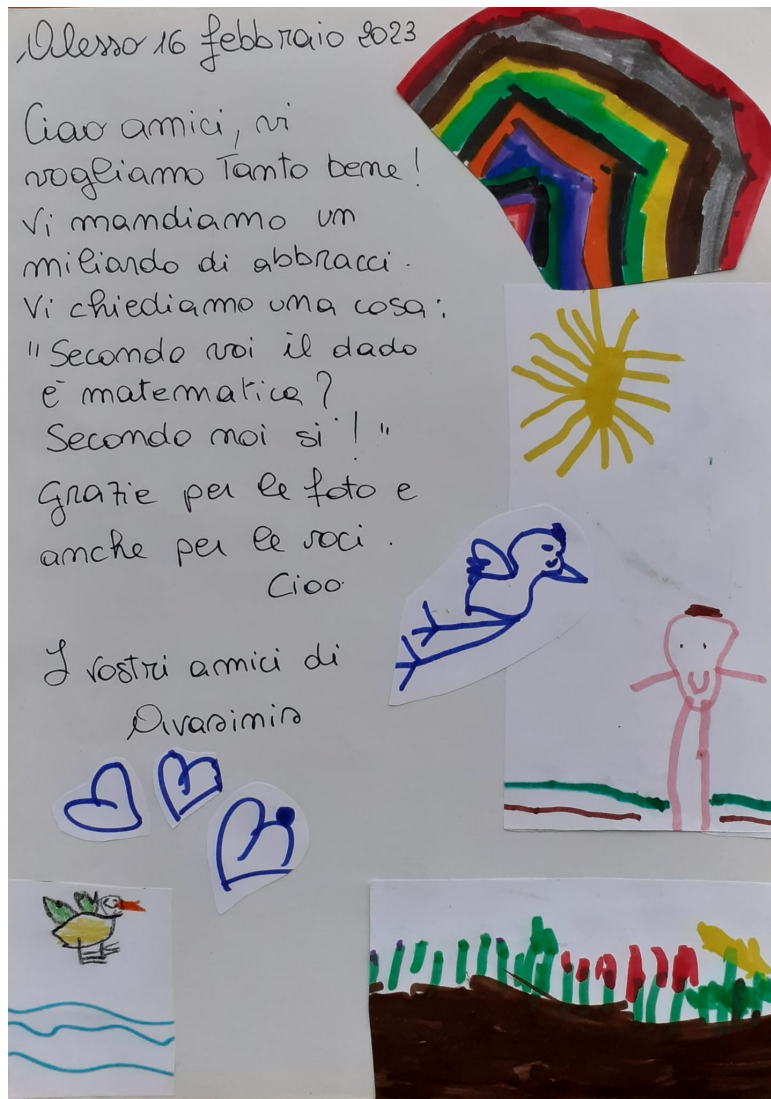 Alesso 16 febbraio 2023
Ciao amici, vi
vogliamo Tanto bene!
Vi mandiamo un
miliardo di abbracci.
Vi chiediamo una cosa:
"Secondo voi il dado
è matematica?
Secondo noi si! "
Grazie per le foto e
anche per le voci.
Ciao
I vostri amici di
Avasinis